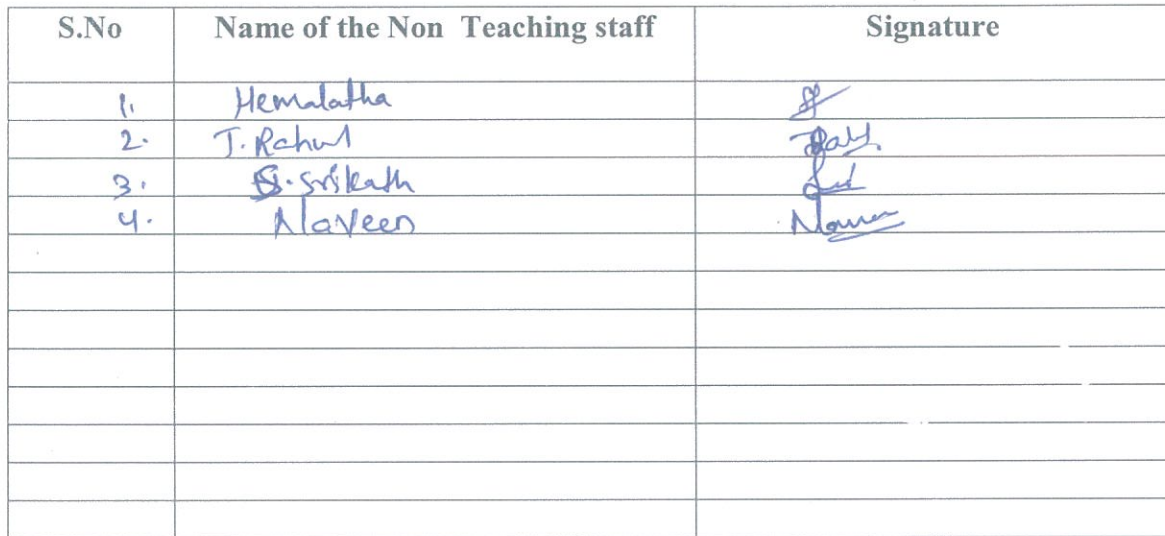 S.No Name of the Non Teaching staff Signature
1. Hemalatha
2. T. Rahul
3. S. Srikath
4. Naveen